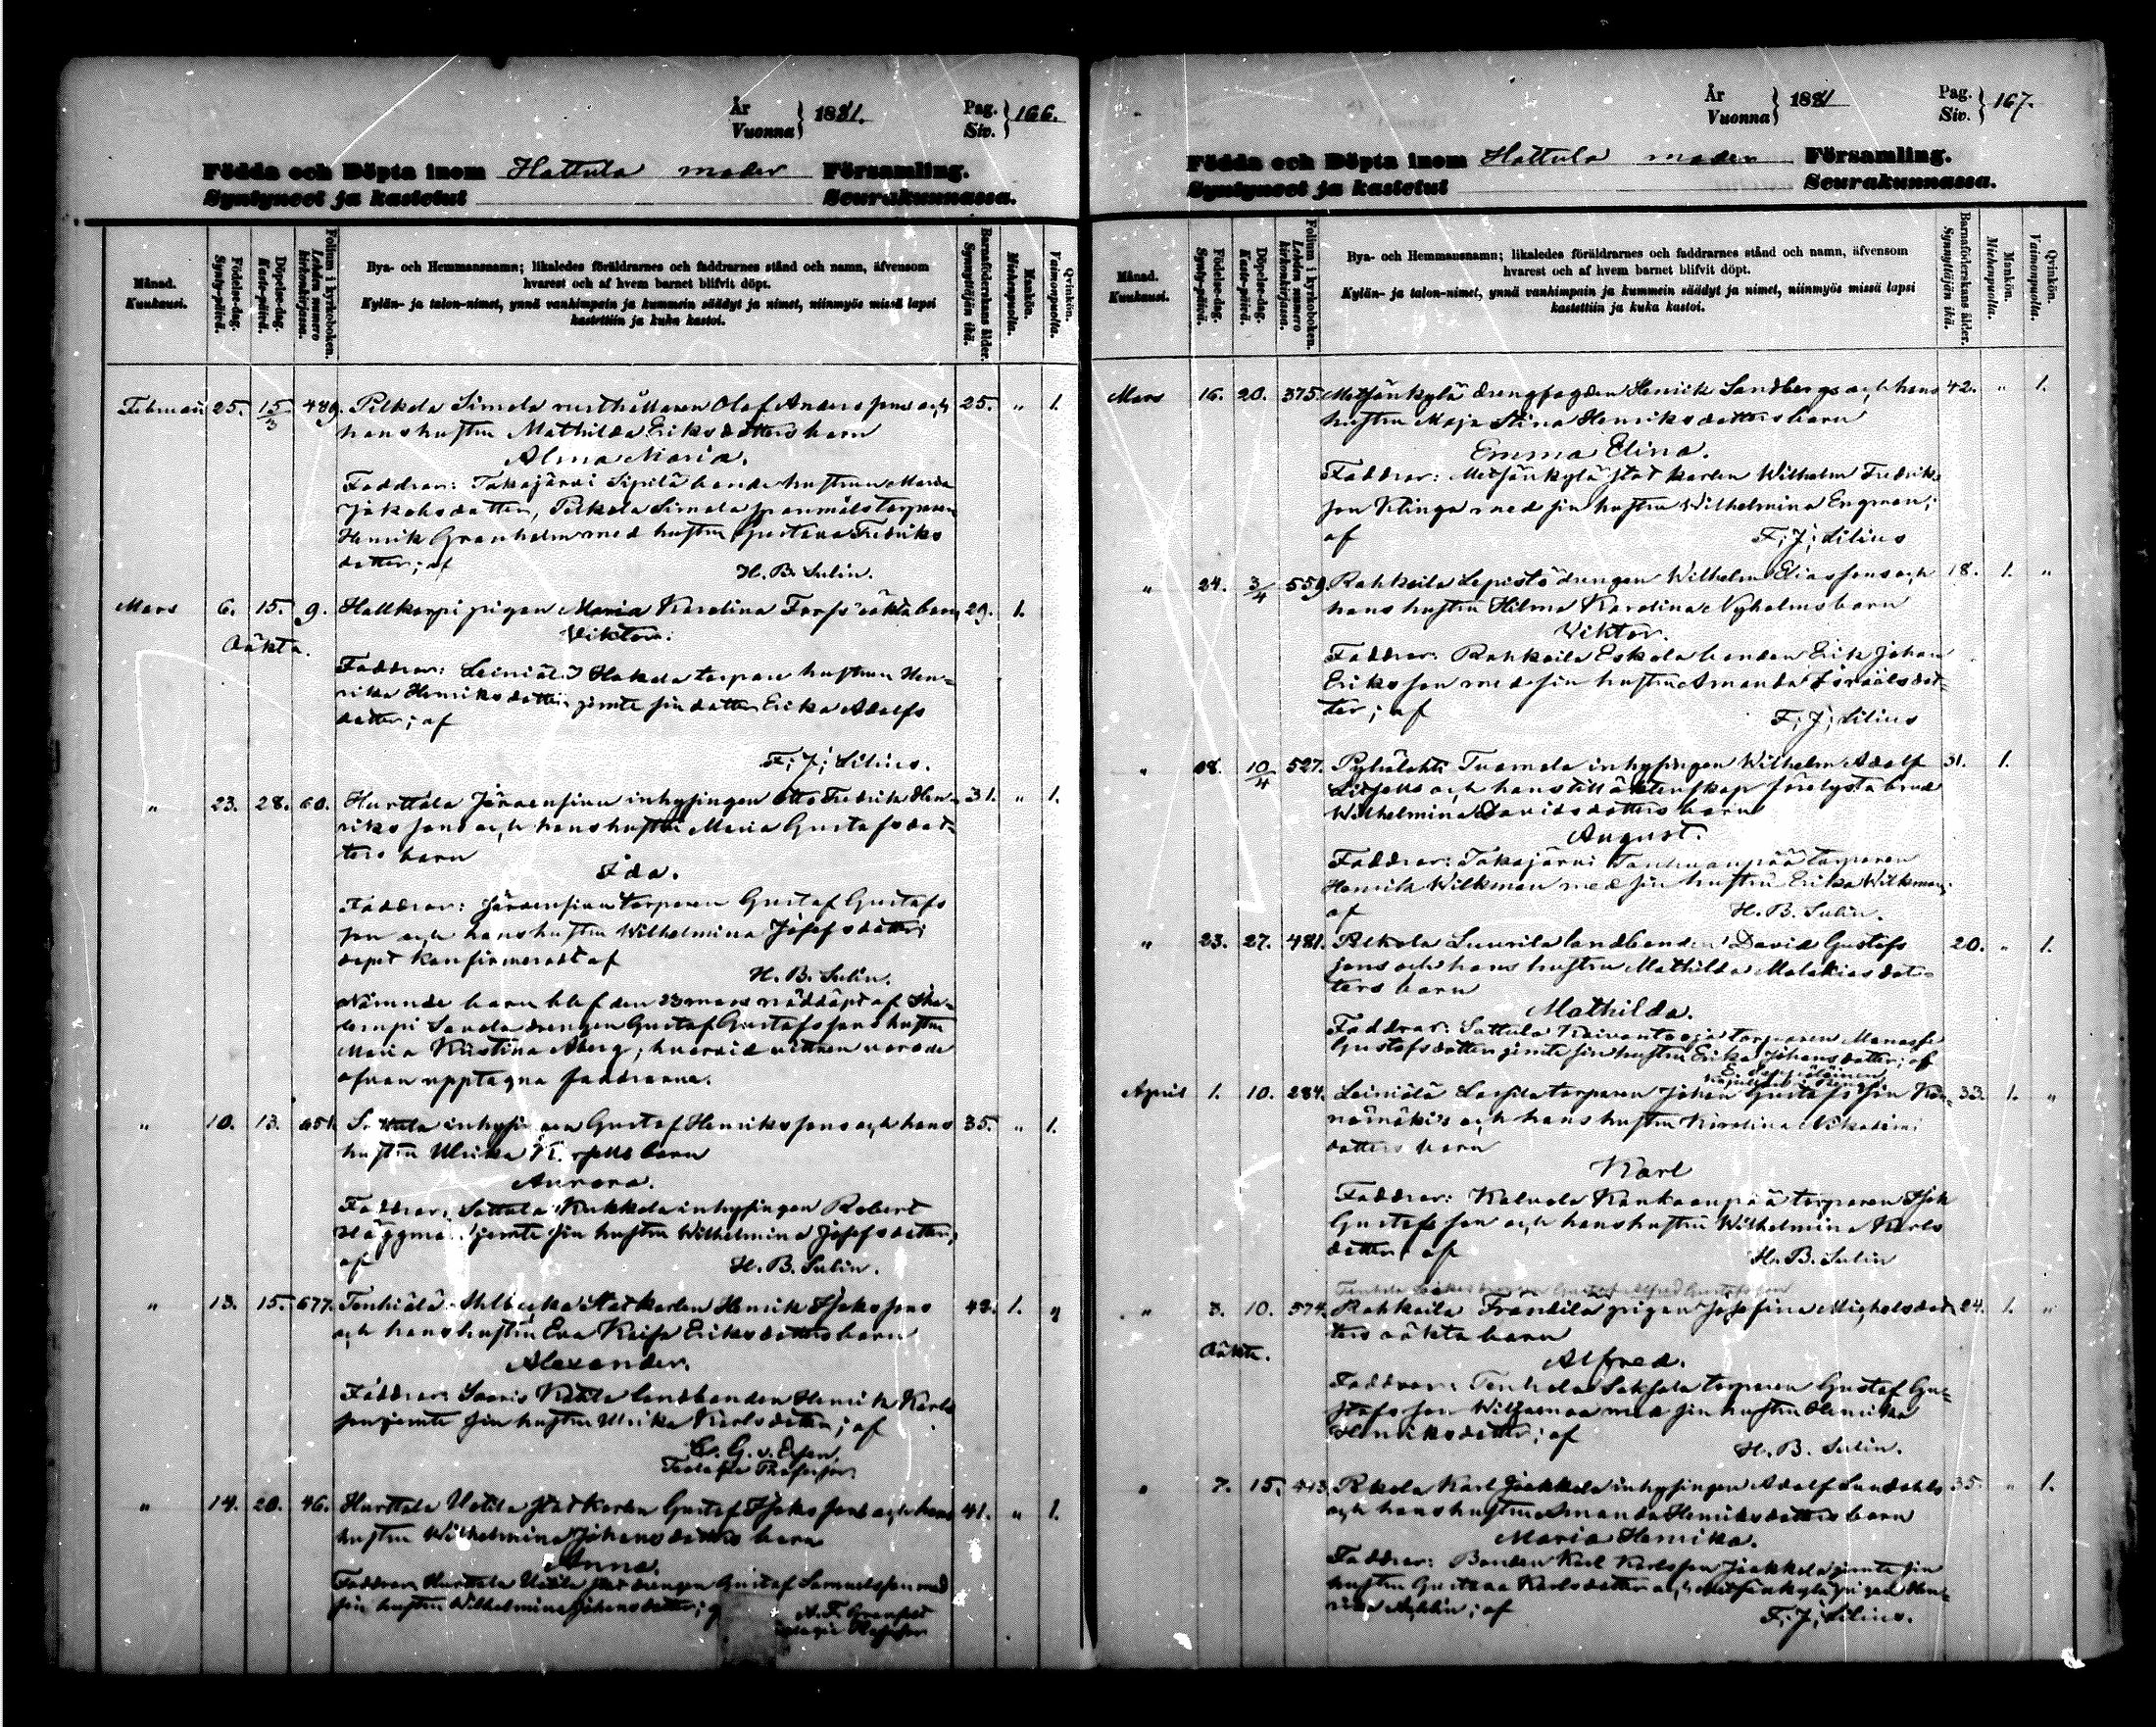 År
Vuonna } 1881.
Pag.
Siv. } 166.
Födda och Döpta inom Hattula moder Församling.
Syntyneet ja kastetut Seurakunnassa.
Månad.
Kuukausi.
Födelse-dag.
Synty-päivä.
Döpelse-dag.
Kaste-päivä.
Folium i kyrkoboken.
Lehden numero kirkonkirjassa.
Bya- och Hemmansnamn; likaledes föräldrarnes och faddrarnes stånd och namn, äfvensom
hvarest och af hvem barnet blifvit döpt.
Kylän- ja talon-nimet, ynnä vanhimpain ja kummein säädyt ja nimet, niinmyös missä lapsi
kastettiin ja kuka kastoi.
Barnaföderskans ålder.
Synnyttäjän ikä.
Mankön.
Miehenpuolta.
Qvinkön.
Vaimonpuolta.
Februari 25. 15/3 489. Pelkola Simola rusthållaren Olof Anders sons och 25. " 1.
hans hustru Mathilda Eriksdotters barn
Alma Maria.
Faddrar: Takajärvi Sipilä bonde hustrun Maria
Jakobsdotter, Pelkola Simola spanmåls torparen
Henrik Granholm med hustru Gustava Fredriks
dotter; af
H. B. Sulin.
Mars 6. 15. 9. Hattkorpi pigan Maria Karolina Forss oäkta barn 29. 1.
Oäkta. Viktor.
Faddrar: Leiniälä Hakola torpare hustrun Hen-
rika Henriksdotter jemte sin dotter Erika Adolfs
dotter; af
F. J. Lilius.
" 23. 28. 60. Hurttala Järvensivu inhysingen Otto Fredrik Hen- 31. " 1.
riks sons och hans hustru Maria Gustafsdot-
ters barn
Ida.
Faddrar: Järvensivu torparen Gustaf Gustafs
son och hans hustru Wilhelmina Josefsdotter;
dopet konfirmeradt af
H. B. Sulin.
Nämnde barn blef den 23 mars nöddöpt af
drengen Gustaf Gustafssons hustru
Maria Kristina Åberg, hvarvid vittnen voro de
ofvan upptagna faddrarna.
" 10. 13. 651. inhysingen Gustaf Henrikssons och hans 35. " 1.
hustru Ulrika barn
Aurora.
Faddrar: Sattula Kukkola inhysingen Robert
Häggman jemte sin hustru Wilhelmina Josefsdotter;
af
H. B. Sulin.
" 13. 15. 677. Tenhiälä Ahlbacka statkarlen Henrik Isaks sons 43. 1. "
och hans hustru Eva Kaisa Eriksdotters barn
Alexander.
Faddrar: Saaris landbonden Henrik Karls
son jemte sin hustru Ulrika Karlsdotter; af
G. v. Essen,
Teologie Professor.
" 14. 20. 46. Hurttala Uotila statkarlen Gustaf Isaks sons och hans 41. " 1.
hustru Wilhelmina Johansdotters barn
Anna.
Faddrar: Hurttala Uotila statdrengen Gustaf Samuelsson med
sin hustru Wilhelmina Johansdotter; af
A. F. Granfelt
Teologie Professor
År
Vuonna } 1881
Pag.
Siv. } 167.
Födda och Döpta inom Hattula moder Församling.
Syntyneet ja kastetut Seurakunnassa.
Månad.
Kuukausi.
Födelse-dag.
Synty-päivä.
Döpelse-dag.
Kaste-päivä.
Folium i kyrkoboken.
Lehden numero kirkonkirjassa.
Bya- och Hemmansnamn; likaledes föräldrarnes och faddrarnes stånd och namn, äfvensom
hvarest och af hvem barnet blifvit döpt.
Kylän- ja talon-nimet, ynnä vanhimpain ja kummein säädyt ja nimet, niinmyös missä lapsi
kastettiin ja kuka kastoi.
Barnaföderskans ålder.
Synnyttäjän ikä.
Mankön.
Miehenpuolta.
Qvinkön.
Vaimonpuolta.
Mars 16. 20. 375. Metsänkylä drengfogden Henrik Sandbergs och hans 42. " 1.
hustru Maja Stina Henriksdotters barn
Emma Elina.
Faddrar: Metsänkylä statkarlen Wilhelm Fredriks
son Klinga med sin hustru Wilhelmina Engman;
af F. J. Lilius
" 24. 3/4 559. Rahkoila Lepistö drengen Wilhelm Eliassons och 18. 1. "
hans hustru Hilma Karolina Nyholms barn
Viktor.
Faddrar: Rahkoila Eskola bonden Erik Johan
Eriksson med sin hustru Amanda Israelsdot-
ter; af
F. J. Lilius
" 28. 10/4 527. Tuomola inhysingen Wilhelm Adolf 31. 1.
och hans till äktenskap förelysta brud
Wilhelmina Davidsdotters barn
August.
Faddrar: Takajärvi torparen
Henrik Wilkman med sin hustru Erika Wilkman;
af H. B. Sulin.
" 23. 27. 481. Pelkola Suurila landbonden David Gustafs 20. " 1.
sons och hans hustru Mathilda Malakiasdot-
ters barn
Mathilda.
Faddrar: Sattula Kaivantooja torparen Manasse
Gustafsdotter jemte sin hustru Erika Johansdotter; af
April 1. 10. 284. Leiniälä Lassila torparen Johan Gustafsson 33. 1. "
och hans hustru Karolina
dotters barn
Karl
Faddrar: Kalvola Kankaanpää torparen Isak
Gustafsson och hans hustru Wilhelmina Karls
dotter; af
H. B. Sulin
" 3. 10. 574. Rahkoila Franssila pigan Josefina Michelsdot- 24. 1. "
ters oäkta barn
Oäkta. Alfred.
Faddrar: Tenhola Saksala torparen Gustaf Gu-
stafsson med sin hustru Henrika
Henriksdotter; af
H. B. Sulin.
" 7. 15. 413. Karl Jaakkola inhysingen Adolf Lundahls 35. " 1.
och hans hustru Amanda Henriksdotters barn
Maria Henrika.
Faddrar: Bonden Karl Karlsson Jaakkola jemte sin
hustru Gustava Karlsdotter och Metsänkylä pigan Hen-
rika; af
F. J. Lilius.